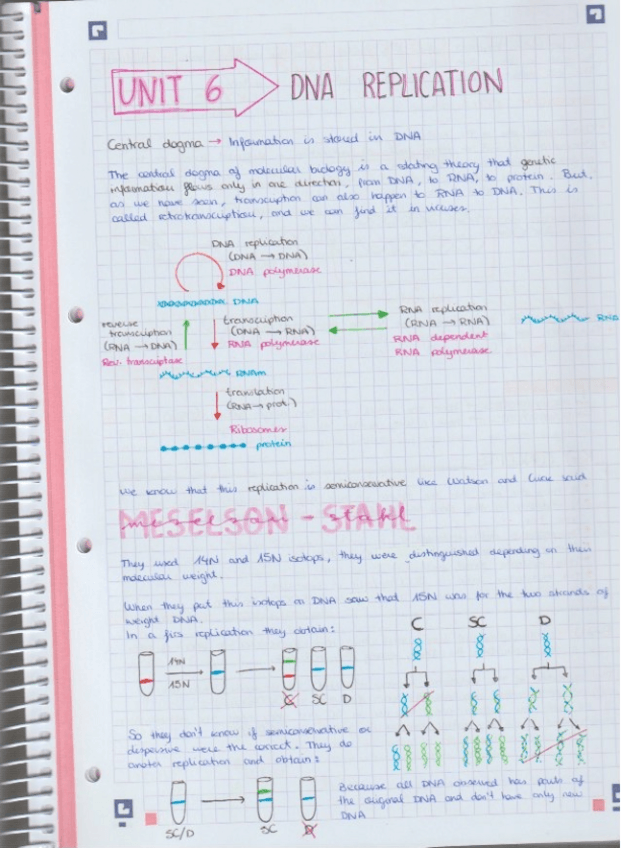 UNIT 6 DNA REPLICATION
Central dogma → Information is stored in DNA
The central dogma of molecular biology is a stating theory that genetic
information flows only in one direction, from DNA, to RNA, to protein. But,
as we have seen, transcription can also happen to RNA to DNA. This is
called retrotranscription, and we can find it in viruses.
DNA replication
(DNA → DNA)
DNA polymerase
DNA
reverse
transcription
(RNA → DNA)
Rev. transcriptase
transcription
(DNA → RNA)
RNA polymerase
RNA replication
(RNA → RNA)
RNA dependent
RNA polymerase
RNA
RNAm
translation
(RNA → prot.)
Ribosomes
protein
We know that this replication is semiconservative like Watson and Crick said
MESELSON - STAHL
They used 14N and 15N isotops, they were distinguished depending on their
molecular weight.
When they put this isotops on DNA saw that 15N was for the two strands of
weight DNA.
In a firs replication they obtain:
14N
15N
C SC D
C SC D
So they don't know if semiconservative or
dispersive were the correct. They do
another replication and obtain:
SC/D
SC D
Because all DNA observed has parts of
the original DNA and don't have only new
DNA